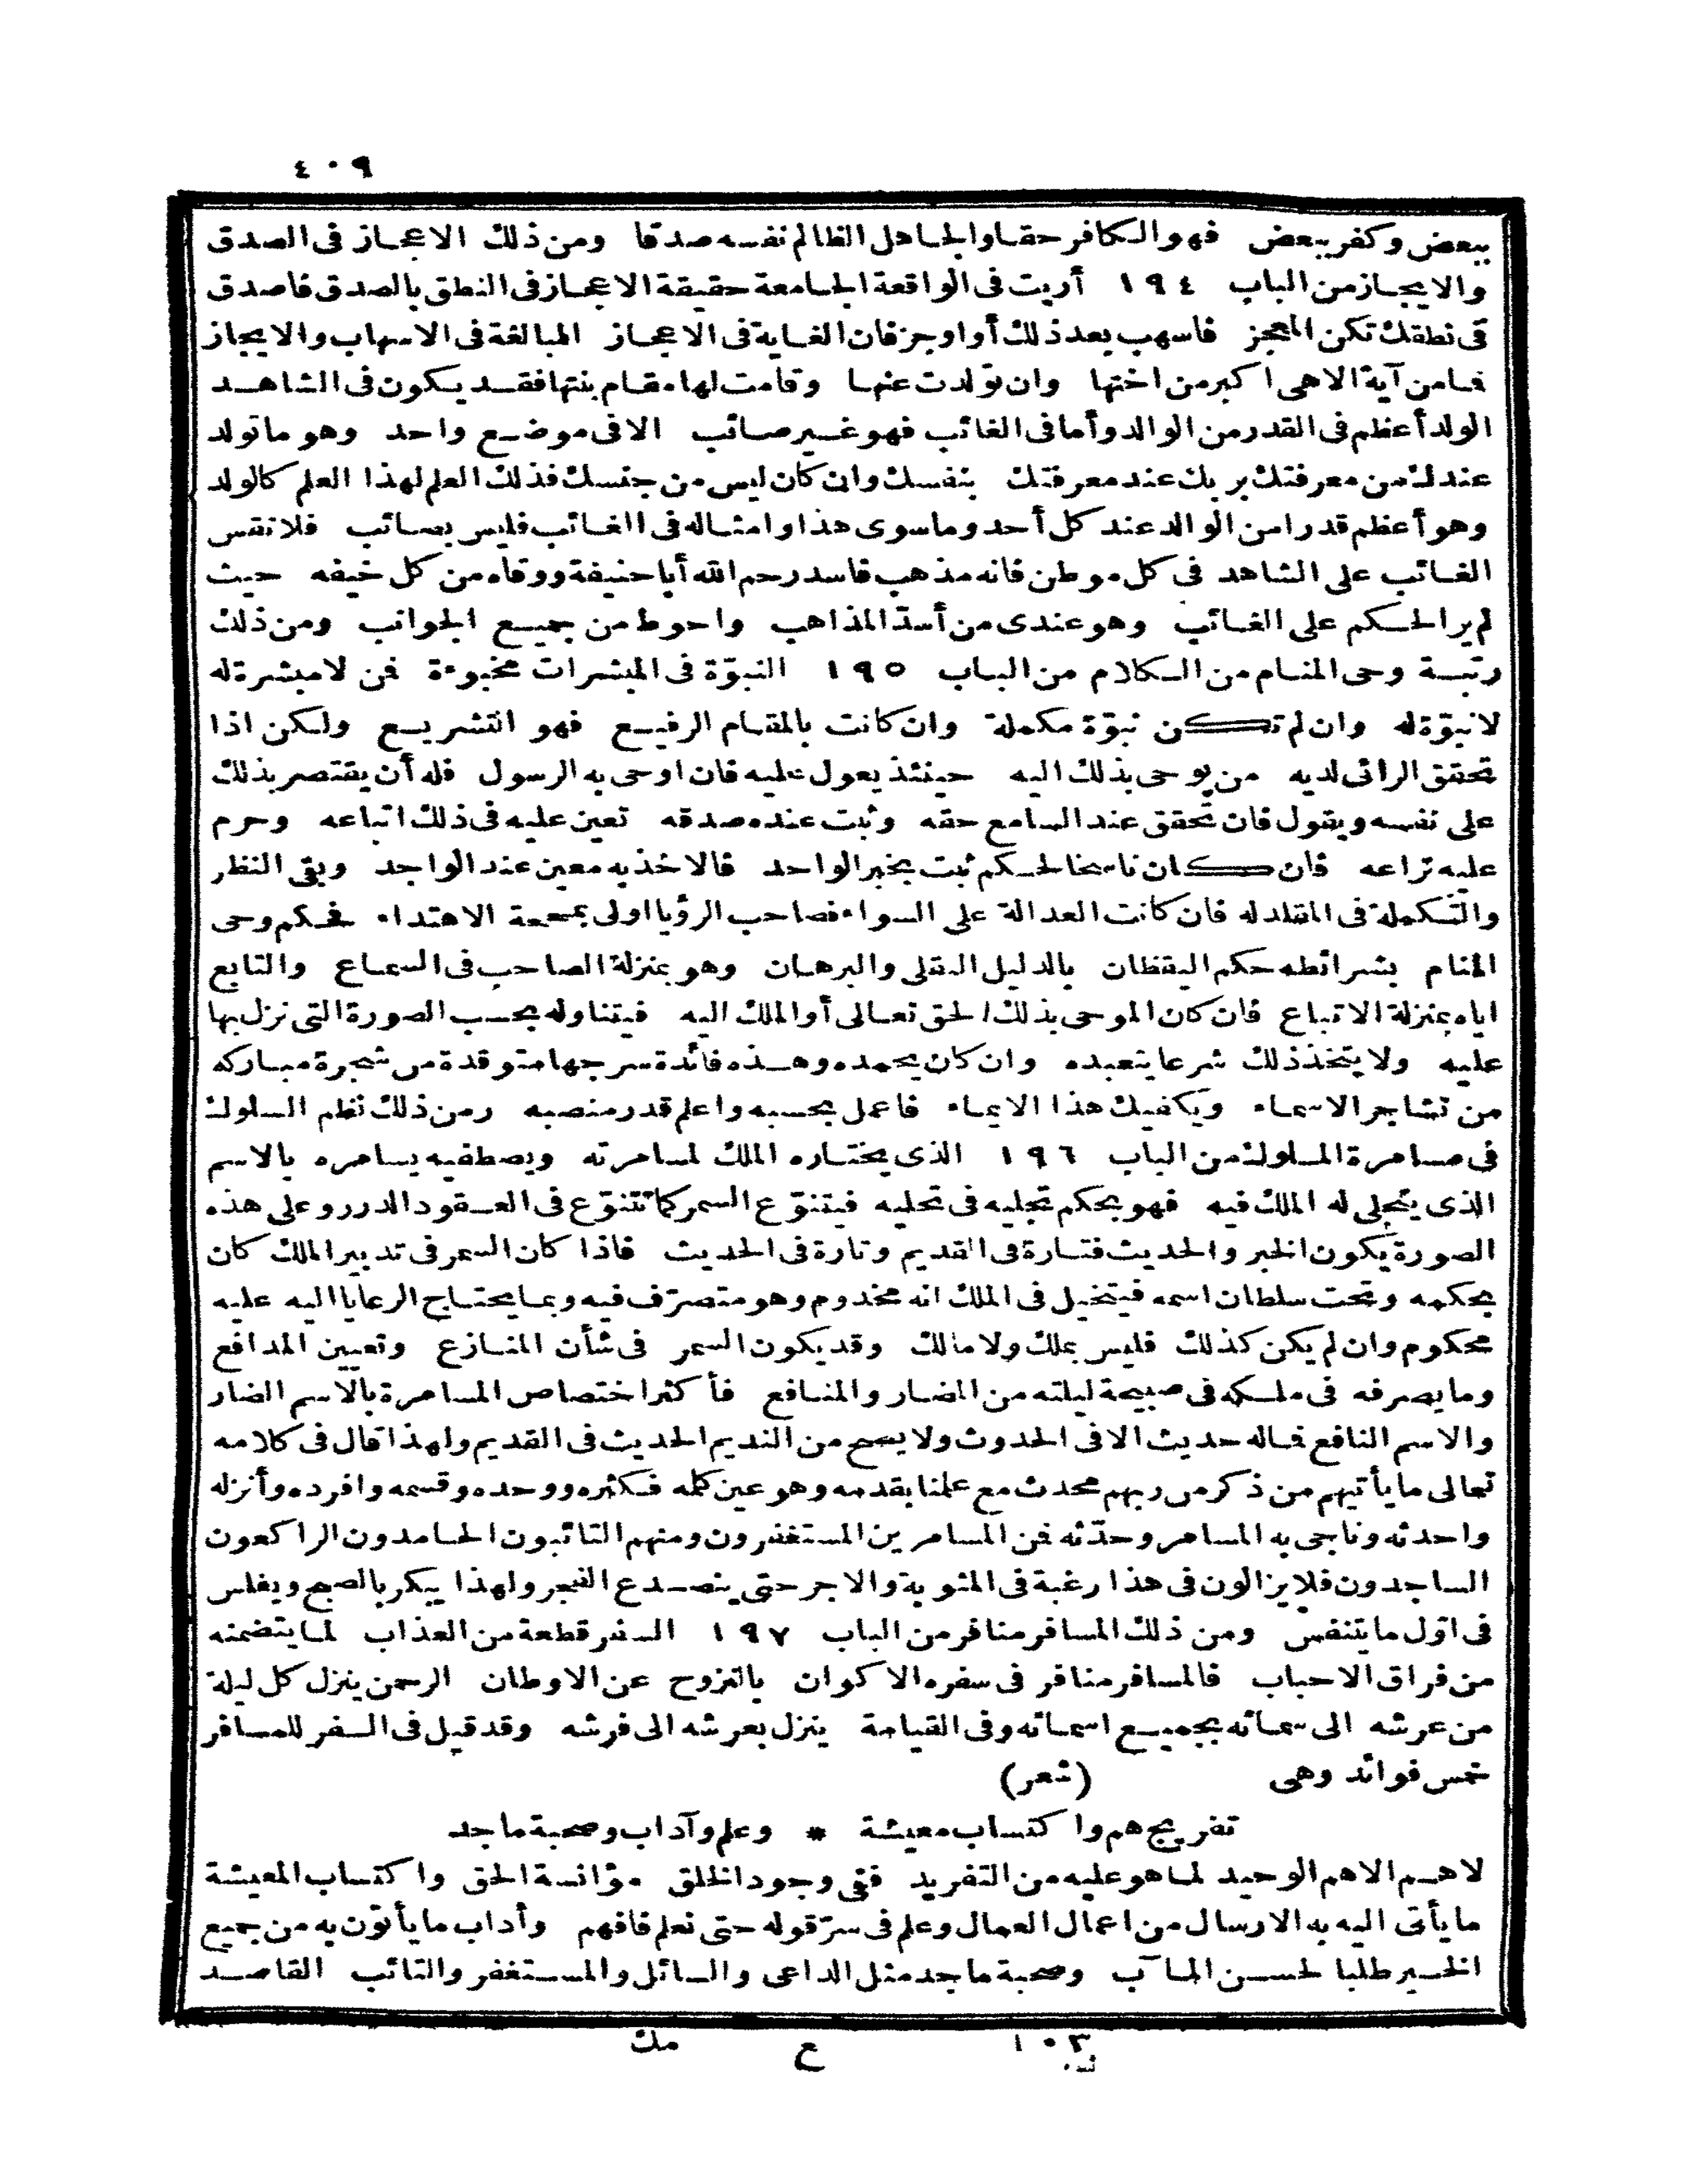 ٤٠٩
ببعض وكفر ببعض فهو الكافر حقا والجاهل الظالم نفسه صدقا ومن ذلك الاعجاز فى الصدق
والايجاز من الباب ١٩٤ أريت فى الواقعة الجامعة حقيقة الاعجاز فى النطق بالصدق فاصدق
فى نطقك تكن المعجز فاسهب بعد ذلك أو اوجز فان الغاية فى الاعجاز المبالغة فى الاسهاب والايجاز
فما من آية الا هى اكبر من اختها وان تولدت عنها وقامت لها مقام بنتها فقد يكون فى الشاهد
الولد أعظم فى القدر من الوالد وأما فى الغائب فهو غير صائب الا فى موضع واحد وهو ما تولد
عندك من معرفتك بربك عند معرفتك بنفسك وان كان ليس من جنسك فذلك العلم لهذا العلم كالولد
وهو أعظم قدرا من الوالد عند كل أحد وما سوى هذا وامثاله فى الغائب فليس بصائب فلا نقس
الغائب على الشاهد فى كل موطن فانه مذهب فاسد رحم الله أبا حنيفة ووقاه من كل خيفه حيث
لم ير الحكم على الغائب وهو عندى من أسدّ المذاهب واحوط من جميع الجوانب ومن ذلك
رتبة وحى المنام من الكلام من الباب ١٩٥ النبوّة فى المبشرات مخبوءة فمن لا مبشرة له
لا نبوّة له وان لم تكن نبوّة مكملة وان كانت بالمقام الرفيع فهو التشريع ولكن اذا
تحقق الرائى لديه من يوحى بذلك اليه حينئذ يعول عليه فان اوحى به الرسول فله أن يقتصر بذلك
على نفسه ويقول فان تحقق عند السامع حقه وثبت عنده صدقه تعين عليه فى ذلك اتباعه وحرم
عليه نزاعه فان كان ناسخا لحكم ثبت بخبر الواحد فالاخذ به معين عند الواجد وبقى النظر
والتكملة فى المقلد له فان كانت العدالة على السواء فصاحب الرؤيا اولى بمحجة الاهتداء فحكم وحى
المنام بشرائطه حكم اليقظان بالدليل النقلى والبرهان وهو بمنزلة الصاحب فى السماع والتابع
اياه بمنزلة الاتباع فان كان الموحى بذلك الحق تعالى أو الملك اليه فيتناوله بحسب الصورة التى نزل بها
عليه ولا يتخذ ذلك شرعا يتعبده وان كان يحمده وهذه فائدة سرجها متوقدة من شجرة مباركه
من تشاجر الاسماء ويكفيك هذا الايماء فاعمل بحسبه واعلم قدر منصبه ومن ذلك نظم السلوك
فى مسامرة الملوك من الباب ١٩٦ الذى يختاره الملك لمسامرته ويصطفيه يسامره بالاسم
الذى يتجلى له الملك فيه فهو بحكم تجليه فى تحليه فيتنوّع السمر كما تتنوّع فى العقود الدرر وعلى هذه
الصورة يكون الخبر والحديث فتارة فى القديم وتارة فى الحديث فاذا كان السمر فى تدبير الملك كان
بحكمه وتحت سلطان اسمه فيتخيل فى الملك انه مخدوم وهو متصرّف فيه وبما يحتاج الرعايا اليه عليه
محكوم وان لم يكن كذلك فليس بملك ولا مالك وقد يكون السمر فى شأن المنازع وتعيين المدافع
وما يصرفه فى ملكه فى صبيحة ليلته من المضار والمنافع فأكثر اختصاص المسامرة بالاسم الضار
والاسم النافع فماله حديث الا فى الحدوث ولا يصح من النديم الحديث فى القديم ولهذا قال فى كلامه
تعالى ما يأتيهم من ذكر من ربهم محدث مع علمنا بقدمه وهو عين كلمه فكثره ووحده وقسمه وافرده وأنزله
واحدثه وناجى به المسامر وحدّثه فمن المسامرين المستغفرون ومنهم التائبون الحامدون الراكعون
الساجدون فلا يزالون فى هذا رغبة فى المثوبة والاجر حتى ينصدع الفجر ولهذا يبكر بالصبح ويغلس
فى اوّل ما يتنفس ومن ذلك المسافر منافر من الباب ١٩٧ السفر قطعة من العذاب لما يتضمنه
من فراق الاحباب فالمسافر منافر فى سفره الاكوان بالنزوح عن الاوطان الرحمن ينزل كل ليلة
من عرشه الى سمائه بجميع اسمائه وفى القيامة ينزل بعرشه الى فرشه وقد قيل فى السفر للمسافر
خمس فوائد وهى (شعر)
تفريج هم واكتساب معيشة * وعلم وآداب وصحبة ماجد
لا هم الا هم الوحيد لما هو عليه من التفريد ففى وجود الخلق مؤانسة الحق واكتساب المعيشة
ما يأتى اليه به الارسال من اعمال العمال وعلم فى سرّ قوله حتى نعلم فافهم وأداب ما يأتون به من جميع
الخير طلبا لحسن المآب وصحبة ماجد مثل الداعى والسائل والمستغفر والتائب القاصد
١٠٣ ع مك